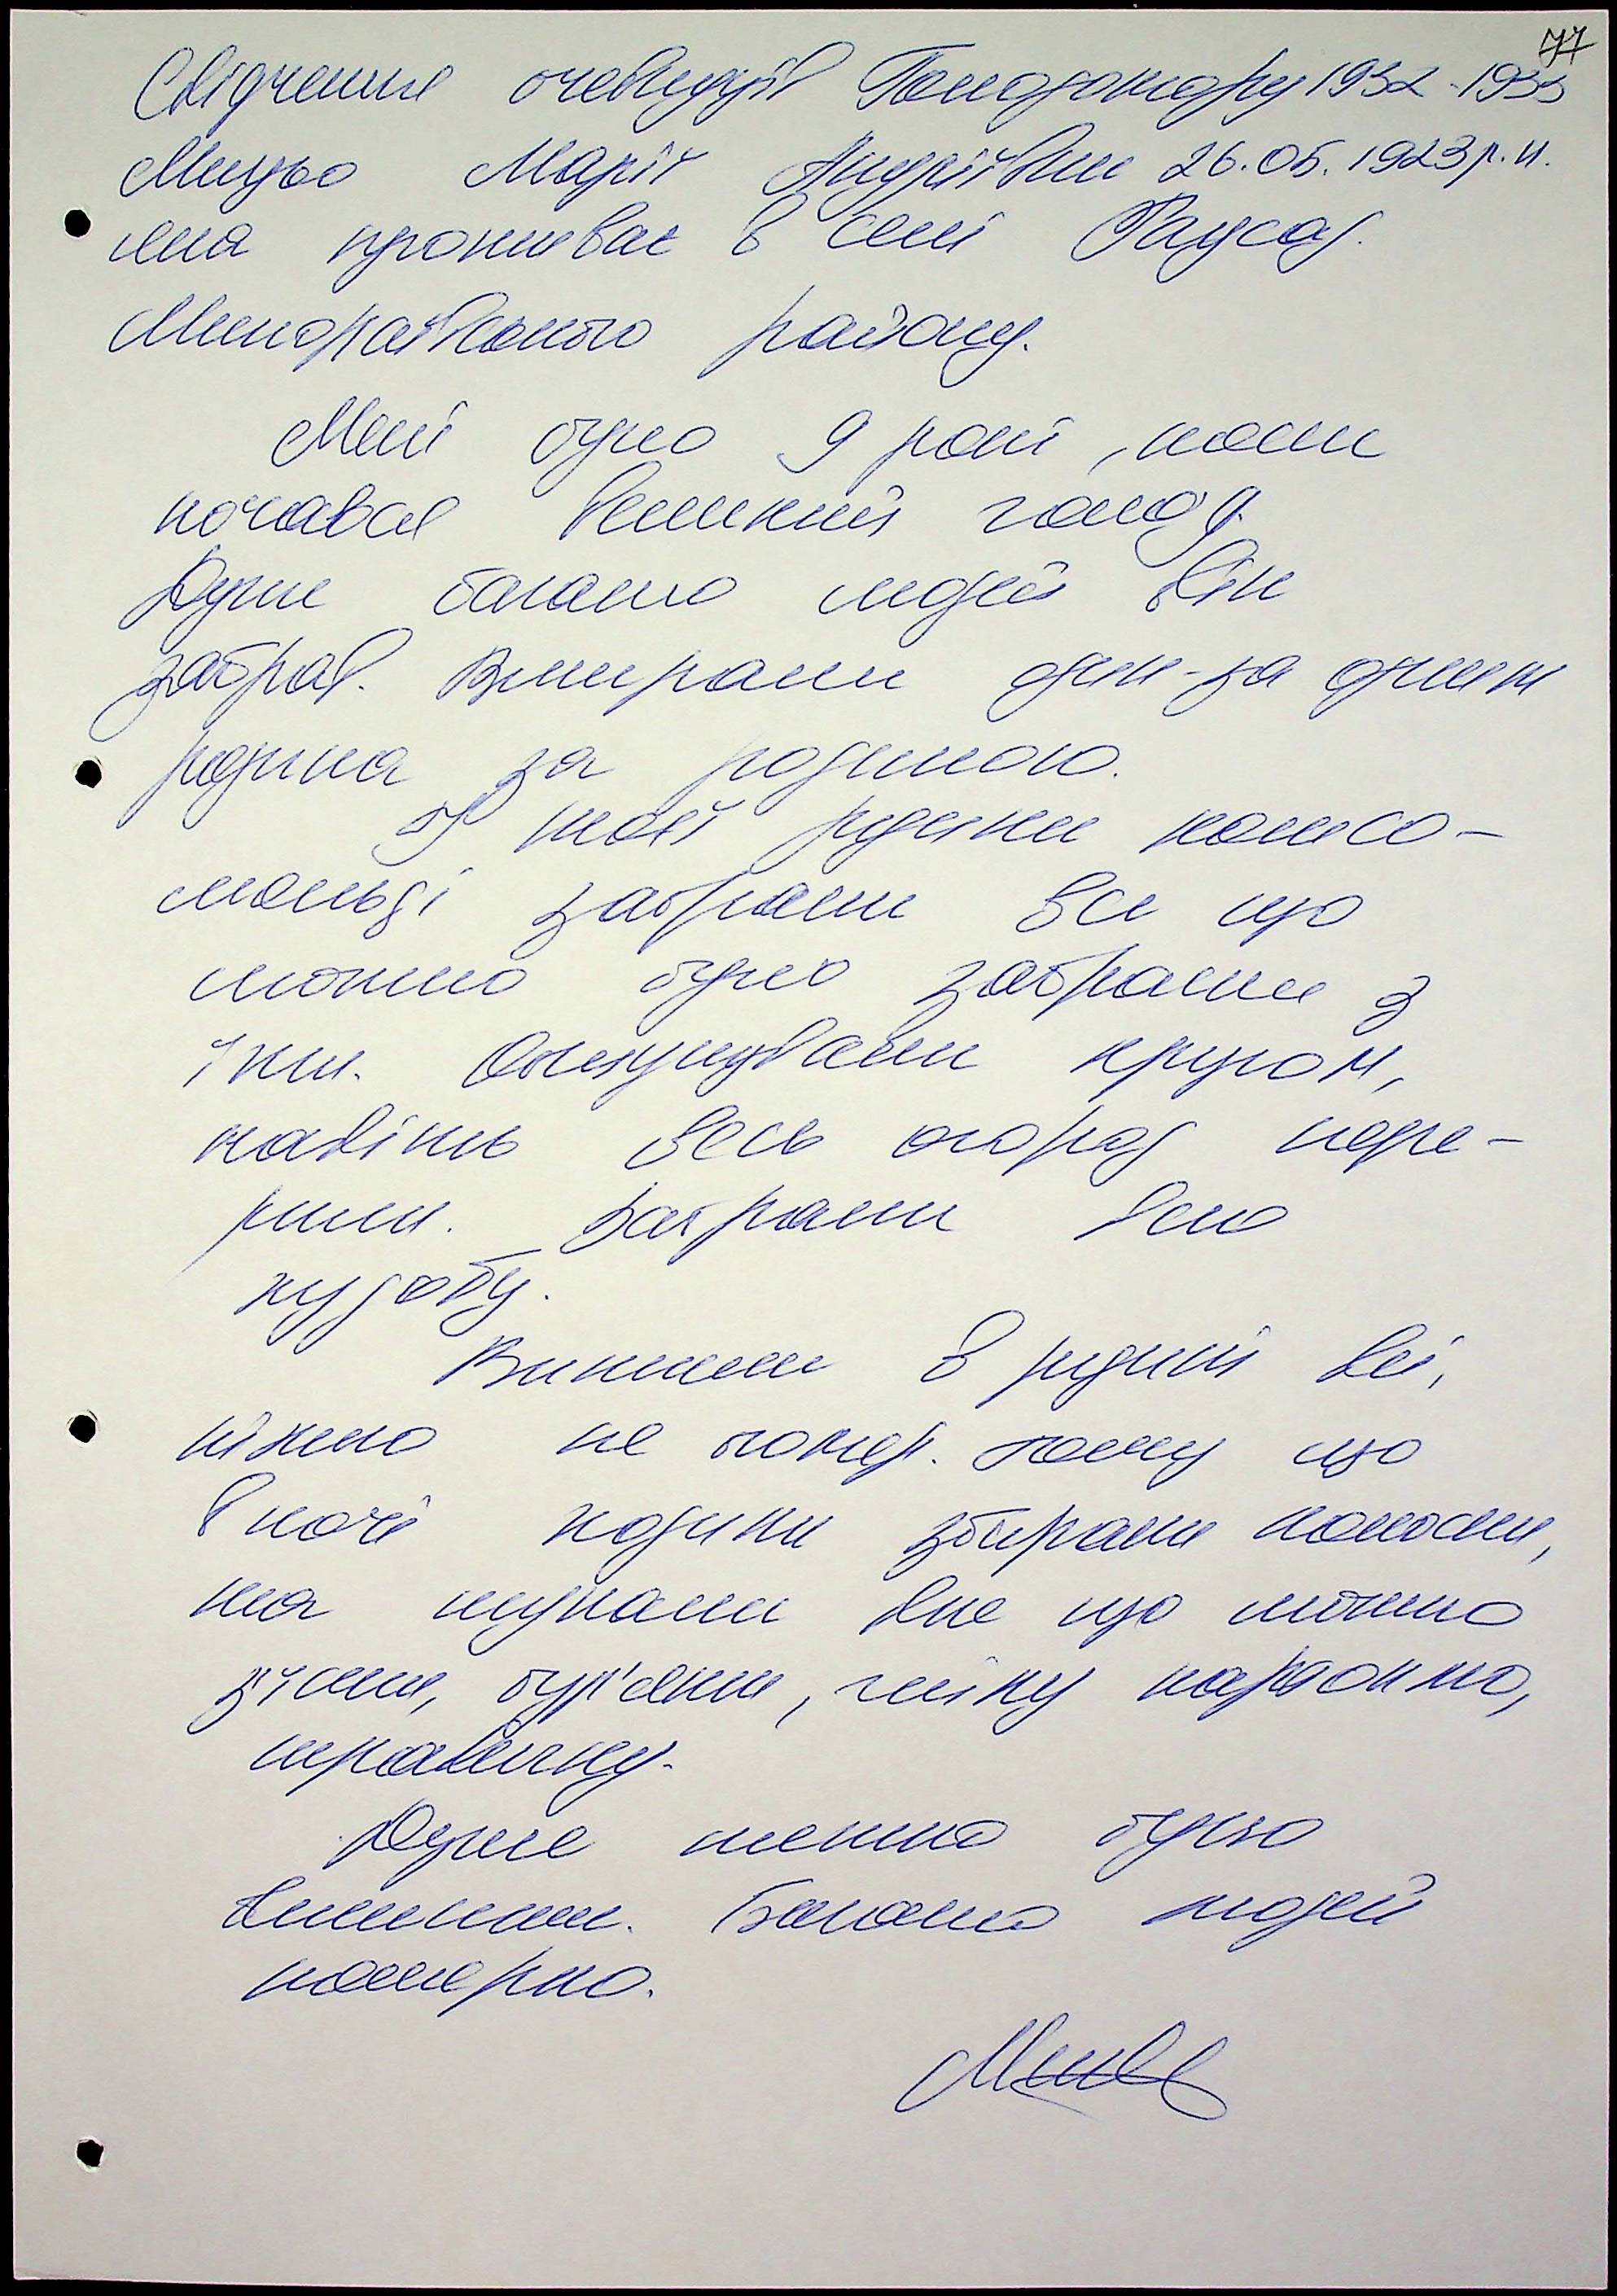 77
Свідчення очевидців Голодомору 1932-1933
Мицьо Марії Андріївни 26.05.1923 р.н.
яка проживає в селі
Миколаївського району.
Мені було 9 років, коли
почався великий голод.
Дуже багато людей він
забрав. Вмирали один-за одним
родина за родиною.
У моєї родини комсо-
мольці забрали все що
можна було забрати з
їжи. Обшукували кругом,
навіть весь огород пере-
рили. Забрали всю
худобу.
Вижили в родині всі,
ніхто не помер. тому що
вночі ходили збирали колоски,
та шукали все що можна
з'їсти, бур'яни, гнілу картоплю,
травичку.
Дуже тяжко було
выживать. Багато людей
померло.